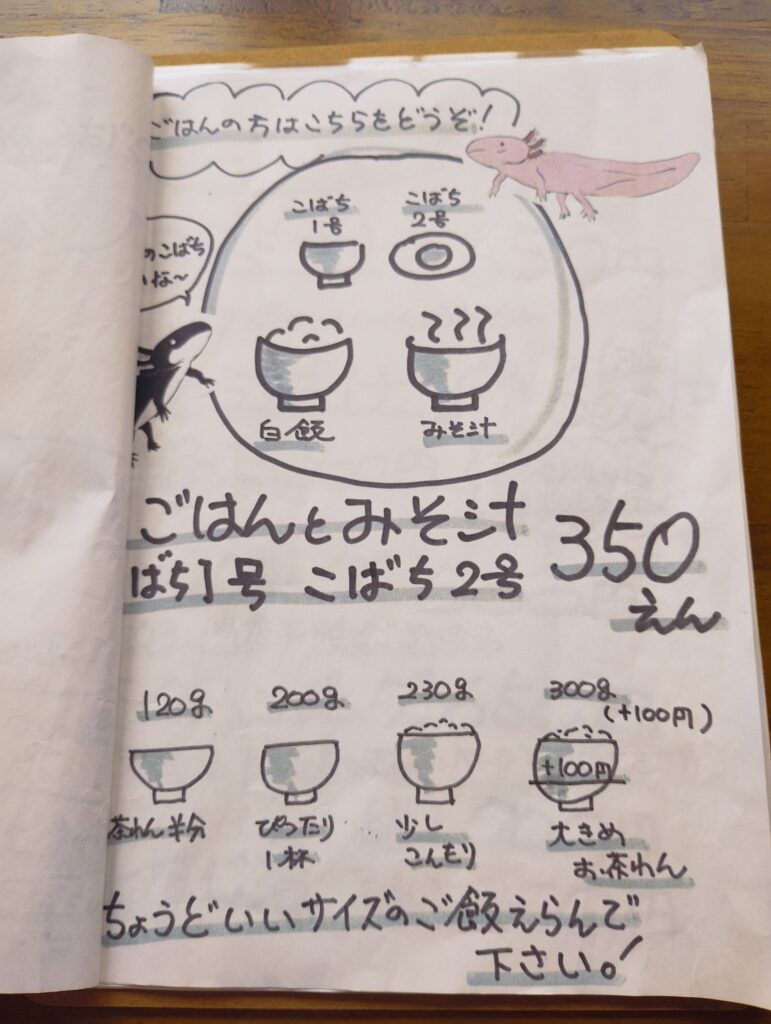 ごはんの方はこちらをどうぞ!
こばち
1号
こばち
2号
のこばち
いな~
白飯
みそ汁
ごはんとみそ汁
ばち1号 こばち2号
350
えん
120g
200g
230g
300g
(+100円)
+100円
茶わん半分
ぴったり
1杯
少し
こんもり
大きめ
お茶わん
ちょうどいいサイズのご飯えらんで
下さい。!